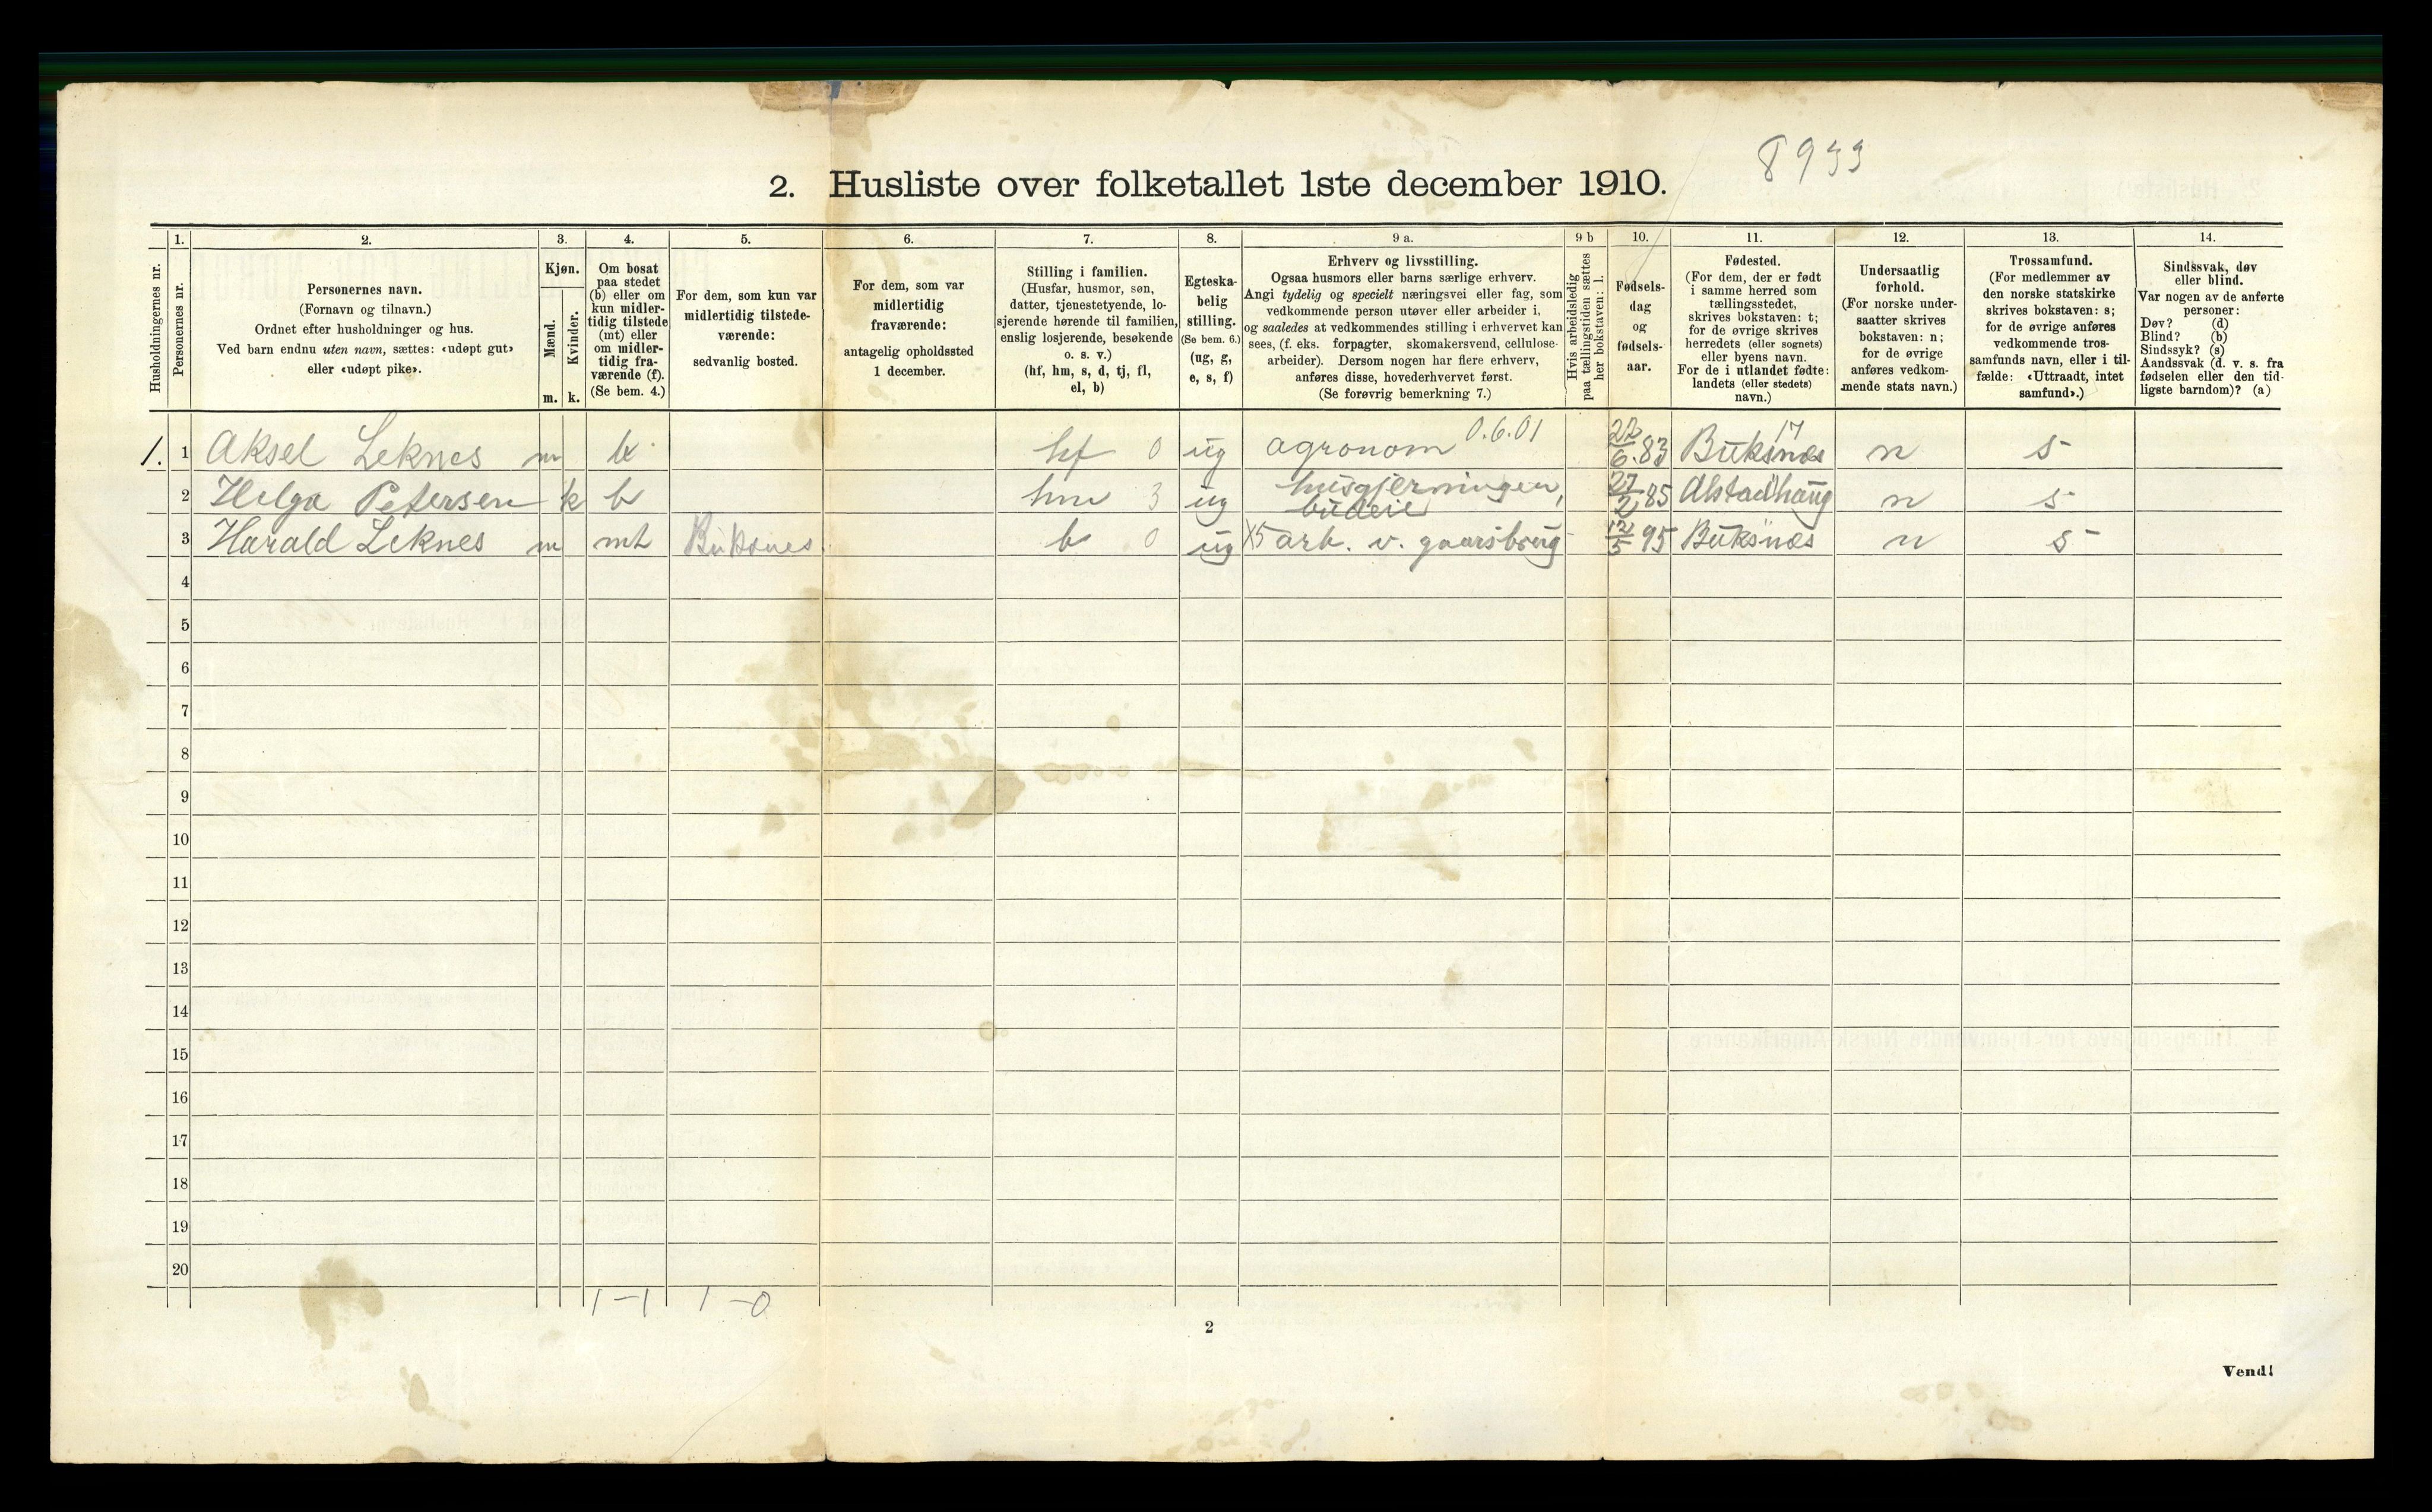 8933
2. Husliste over folketallet 1ste december 1910.
Husholdningernes nr.
1.
Personernes nr.
2.
Personernes navn.
(Fornavn og tilnavn.)
Ordnet efter husholdninger og hus.
Ved barn endnu uten navn, sættes: «udøpt gut»
eller «udøpt pike».
3.
Kjøn.
Mænd.
Kvinder.
m. k.
4.
Om bosat
paa stedet
(b) eller om
kun midler-
tidig tilstede
(mt) eller
om midler-
tidig fra-
værende (f).
(Se bem. 4.)
5.
For dem, som kun var
midlertidig tilstede-
værende:
sedvanlig bosted.
6.
For dem, som var
midlertidig
fraværende:
antagelig opholdssted
1 december.
7.
Stilling i familien.
(Husfar, husmor, søn,
datter, tjenestetyende, lo-
sjerende hørende til familien,
enslig losjerende, besøkende
o. s. v.)
(hf, hm, s, d, tj, fl,
el, b)
8.
Egteska-
belig
stilling.
(Se bem. 6.)
(ug, g,
e, s, f)
9 a.
Erhverv og livsstilling.
Ogsaa husmors eller barns særlige erhverv.
Angi tydelig og specielt næringsvei eller fag, som
vedkommende person utøver eller arbeider i,
og saaledes at vedkommendes stilling i erhvervet kan
sees, (f. eks. forpagter, skomakersvend, cellulose-
arbeider). Dersom nogen har flere erhverv,
anføres disse, hovederhvervet først.
(Se forøvrig bemerkning 7.)
9 b
Hvis arbeidsledig
paa tællingstiden sættes
her bokstaven: l.
10.
Fødsels-
dag
og
fødsels-
aar.
11.
Fødested.
(For dem, der er født
i samme herred som
tællingsstedet,
skrives bokstaven: t;
for de øvrige skrives
herredets (eller sognets)
eller byens navn.
For de i utlandet fødte:
landets (eller stedets)
navn.)
12.
Undersaatlig
forhold.
(For norske under-
saatter skrives
bokstaven: n;
for de øvrige
anføres vedkom-
mende stats navn.)
13.
Trossamfund.
(For medlemmer av
den norske statskirke
skrives bokstaven: s;
for de øvrige anføres
vedkommende tros-
samfunds navn, eller i til-
fælde: «Uttraadt, intet
samfund».)
14.
Sindssvak, døv
eller blind.
Var nogen av de anførte
personer:
Døv? (d)
Blind? (b)
Sindssyk? (s)
Aandssvak (d. v. s. fra
fødselen eller den tid-
ligste barndom)? (a)
1. 1 Aksel Leknes m b hf 0 ug agronom 0.6.01 22/6.83 Buksnæs 17 n s
2 Helga Petersen k b hm 3 ug husgjerningen, 27/2 85 Alstadhaug n s
budeie
3 Harald Leknes m mt Buksnes b 0 ug X5 arb. v. gaarsbrug 12/5 95 Buksnæs n s
4
5
6
7
8
9
10
11
12
13
14
15
16
17
18
19
20
1-1 1-0
2
Vend!